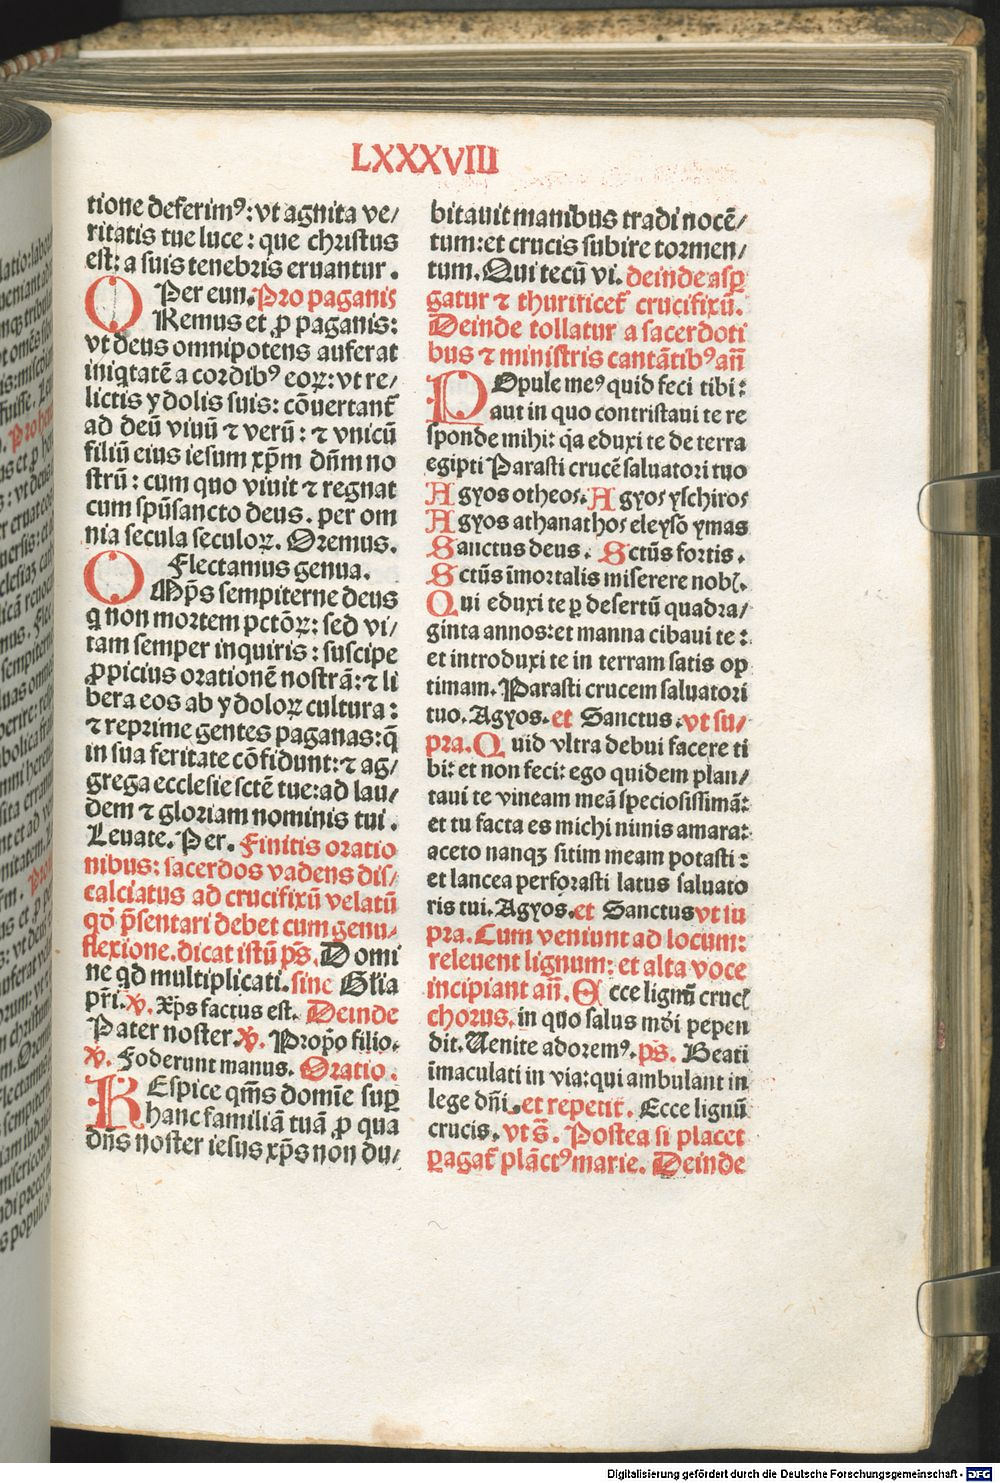 LXXXVIII
tione deferimꝰ: vt agnita ve/
ritatis tue luce: que christus
est: a suis tenebris eruantur.
Per eun. Pro paganis
ORemus et ꝓ paganis:
vt deus omnipotens auferat
iniqtatē a cordibꝰ eoꝝ: vt re/
lictis ydolis suis: cōuertant᷑
ad deū viuū ⁊ verū: ⁊ vnicū
filiū eius iesum xp̄m dn̄m no
strū: cum quo viuit ⁊ regnat
cum spūsancto deus. per om
nia secula seculoꝝ. Oremus.
Flectamus genua.
OMp̄s sempiterne deus
q non mortem pctōꝝ: sed vi/
tam semper inquiris: suscipe
ꝓpicius orationē nostrā: ⁊ li
bera eos ab ydoloꝝ cultura:
⁊ reprime gentes paganas: q̄
in sua feritate cōfidunt: ⁊ ag/
grega ecclesie sctē tue: ad lau/
dem ⁊ gloriam nominis tui.
Leuate. Per. Finitis oratio
nibus: sacerdos vadens dis/
calciatus ad crucifixū velatū
qd̄ p̄sentari debet cum genu/
flexione. dicat istū ps̄. Domi
ne qd multiplicati. sine Glia
pr̄i. ℣. Xp̄s factus est. Deinde
Pater noster. ℣. Propo filio.
℣. Foderunt manus. Oratio.
REspice qm̄s domīe suꝑ
hanc familiā tuā ꝓ qua
dn̄s noster iesus xp̄s non du/
bitauit manibus tradi nocē/
tum: et crucis subire tormen/
tum. Qui tecū vi. deinde aspꝑ
gatur ⁊ thurificet᷑ crucifixū.
Deinde tollatur a sacerdoti
bus ⁊ ministris cantātibꝰ an̄
POpule meꝰ quid feci tibi:
aut in quo contristaui te re
sponde mihi: qa eduxi te de terra
egipti Parasti crucē saluatori tuo
Agyos otheos. Agyos yschiros
Agyos athanathos eleyso ymas
Sanctus deus. Sctūs fortis.
Sctūs īmortalis miserere nobꝭ.
Qui eduxi te ꝑ desertū quadra/
ginta annos: et manna cibaui te:
et introduxi te in terram satis op
timam. Parasti crucem saluatori
tuo. Agyos. et Sanctus. vt su/
pra. Quid vltra debui facere ti
bi: et non feci: ego quidem plan/
taui te vineam meā speciosissimā:
et tu facta es michi nimis amara:
aceto nanqꝫ sitim meam potasti:
et lancea perforasti latus saluato
ris tui. Agyos. et Sanctus vt su
pra. Cum veniunt ad locum:
releuent lignum: et alta voce
incipiant an̄. Ecce lignū crucꝭ
chorus. in quo salus mōi pepen
dit. Uenite adoremꝰ. ps̄. Beati
īmaculati in via: qui ambulant in
lege dn̄i. et repetit. Ecce lignū
crucis. vt s̄. Postea si placet
ꝑagat᷑ plāctꝰ marie. Deinde
Digitalisierung gefördert durch die Deutsche Forschungsgemeinschaft - DFG